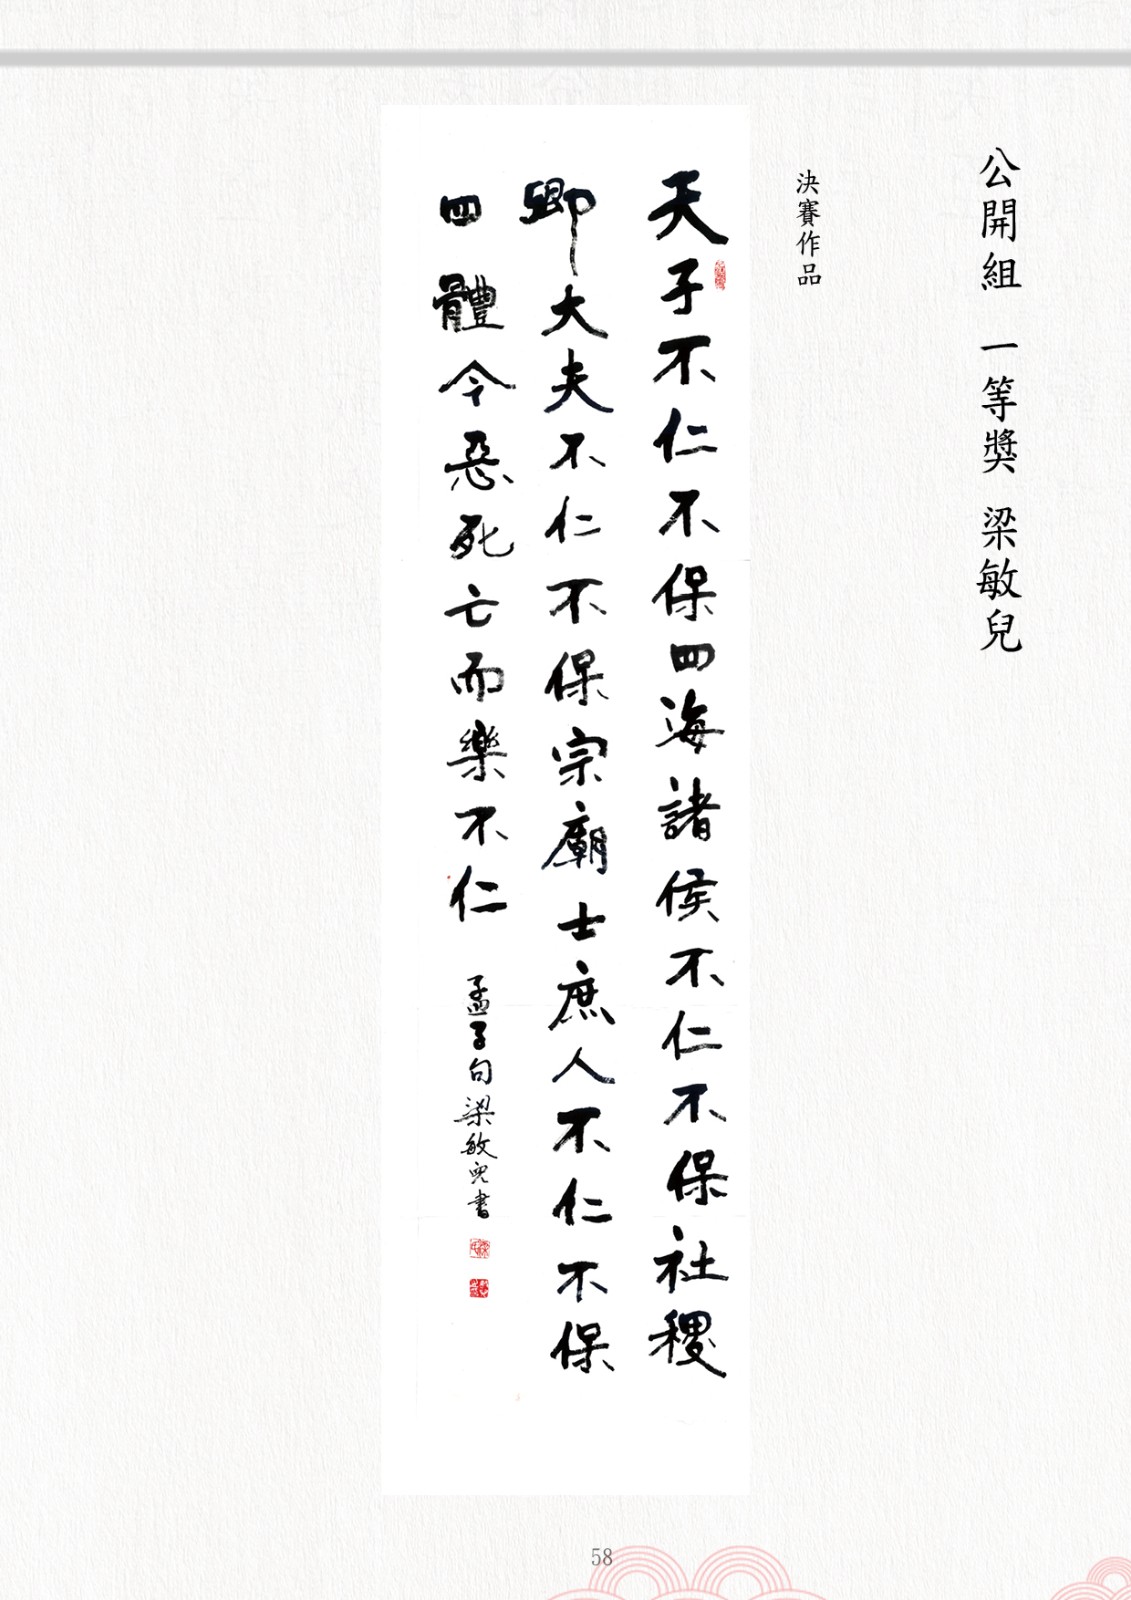 公開組 一等獎 梁敏兒
決賽作品
天子不仁不保四海諸侯不仁不保社稷
卿大夫不仁不保宗廟士庶人不仁不保
四體今惡死亡而樂不仁
孟子句梁敏兒書
58